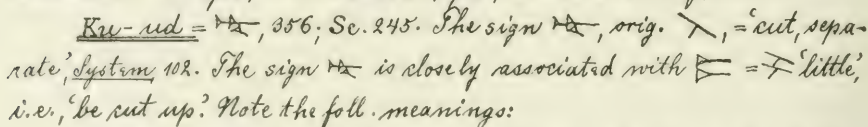 Ku-ud = 𒋻, 356; Sc. 245. The sign 𒋻, orig. , = 'cut, sepa-
rate,' System, 102. The sign 𒋻 is closely associated with = 'little',
i.e., 'be cut up.' Note the foll. meanings: